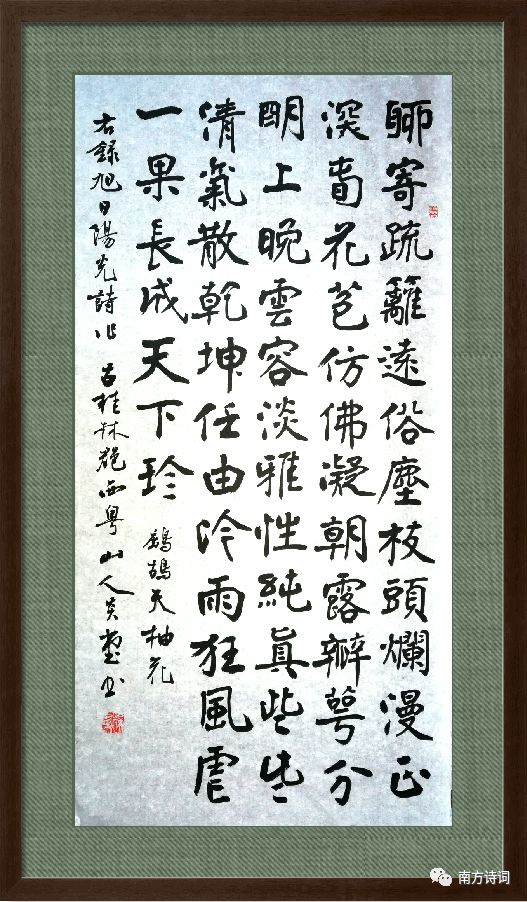 聊寄疏籬遠俗塵枝頭爛漫正
深春花苞仿佛凝朝露瓣萼分
明上晚雲容淡雅性純真些些
清氣散乾坤任由冷雨狂風虐
一果長成天下珍
鷓鴣天柚花
右錄旭日陽光詩作 古桂林 西粵山人 書
南方诗词